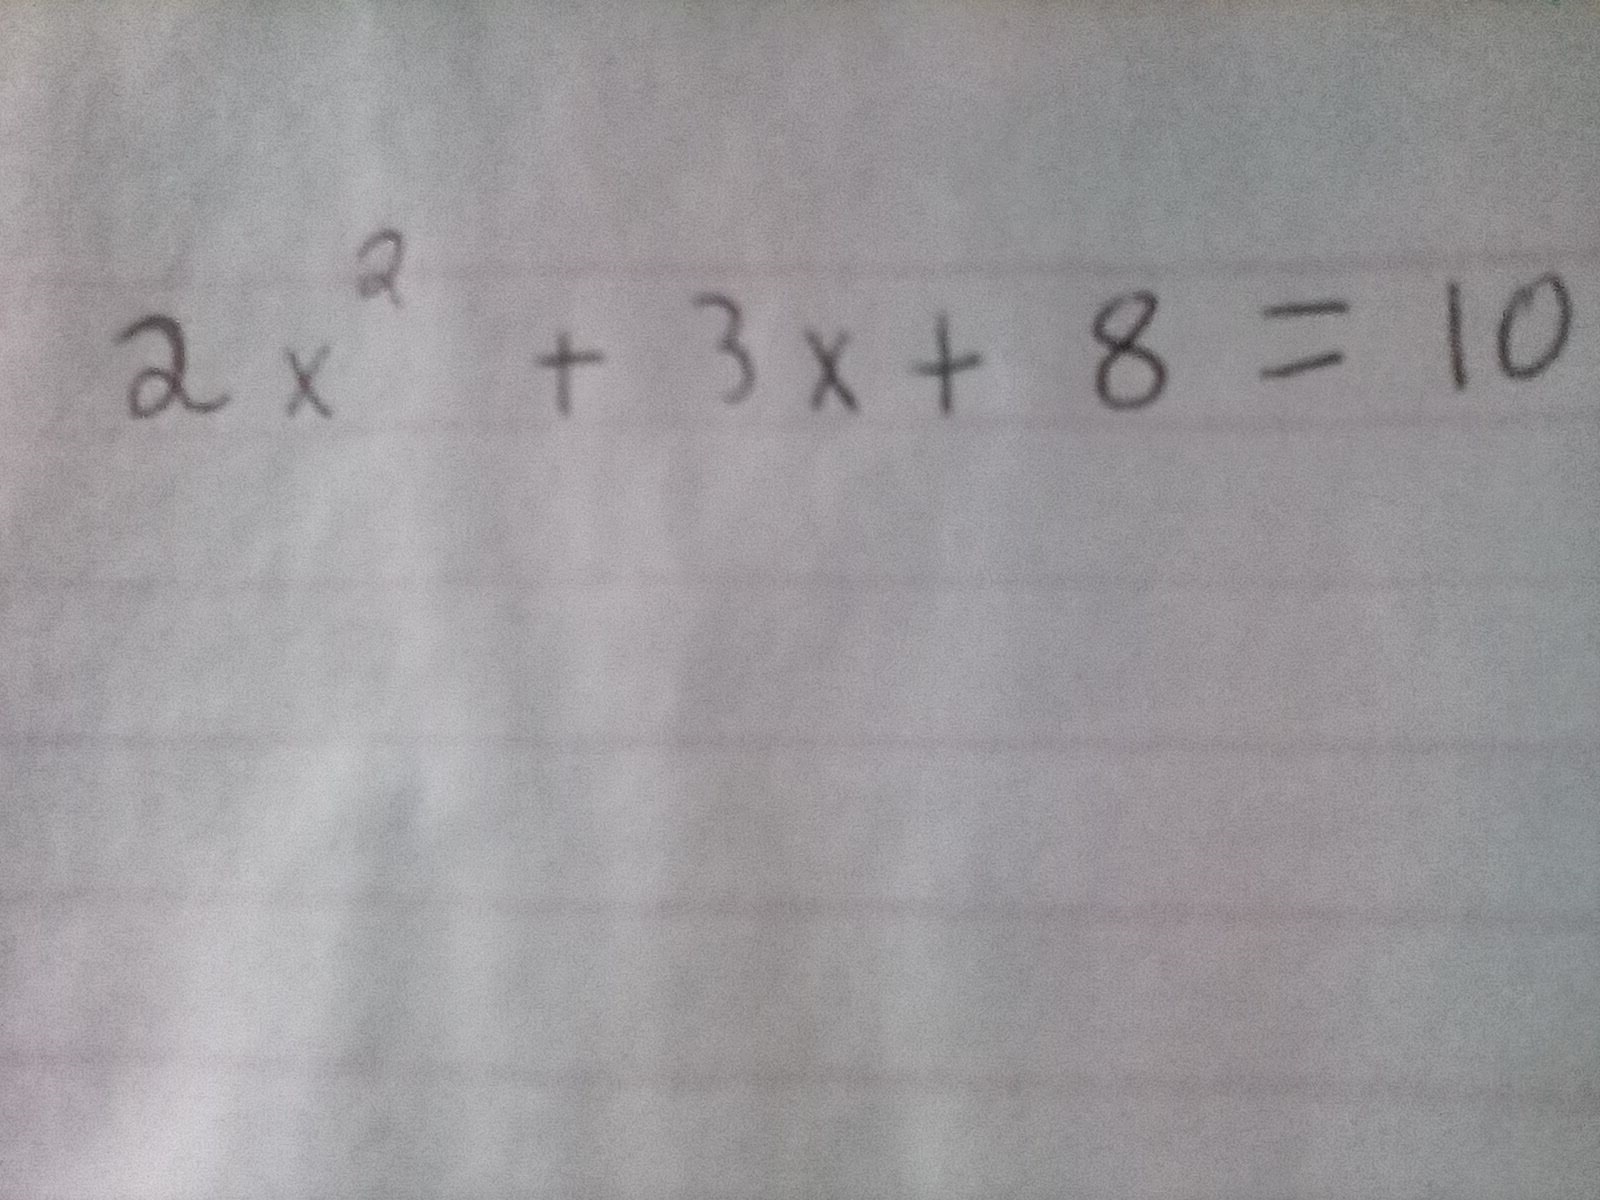 2x² + 3x + 8 = 10